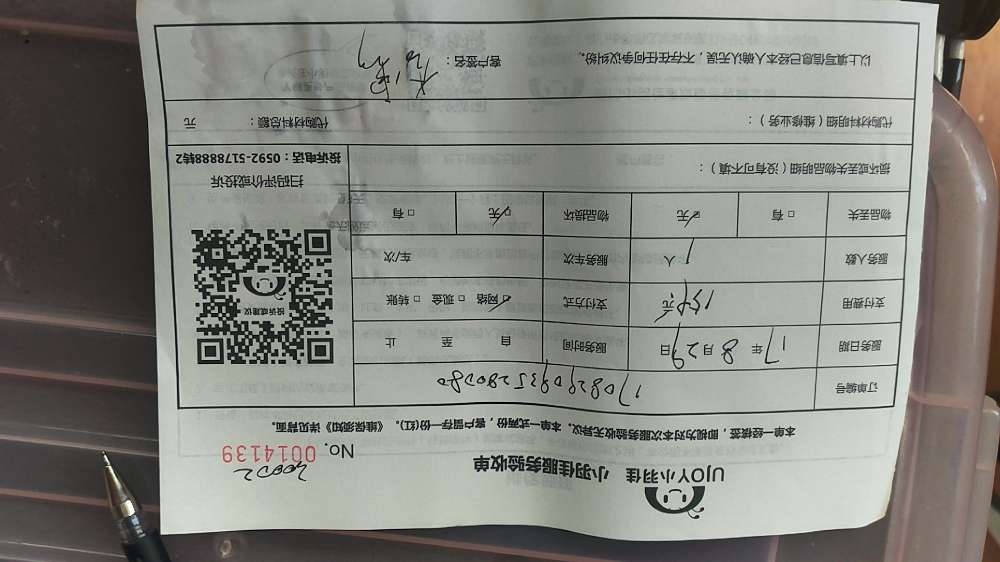 UJOY小羽佳 小羽佳服务验收单
No. 0014139
本单一经核签，即视为对本次服务验收无异议。本单一式两份，客户留存一份(红)。《维保须知》详见背面。
订单编号
服务日期 17年8月29日 服务时间 自 至 止
支付费用 元 支付方式 ☑网络 □现金 □转账
服务人数 1人 服务车次 车/次
物品丢失 □有 ☑无 物品损坏 ☑无 □有
投诉或建议
扫码评价或投诉
投诉电话：0592-5178888转2
损坏或丢失物品明细（没有可不填）：
代购材料明细（维修业务）： 代购材料总额： 元
以上填写信息已经本人确认无误，不存在任何争议纠纷。 客户签名：